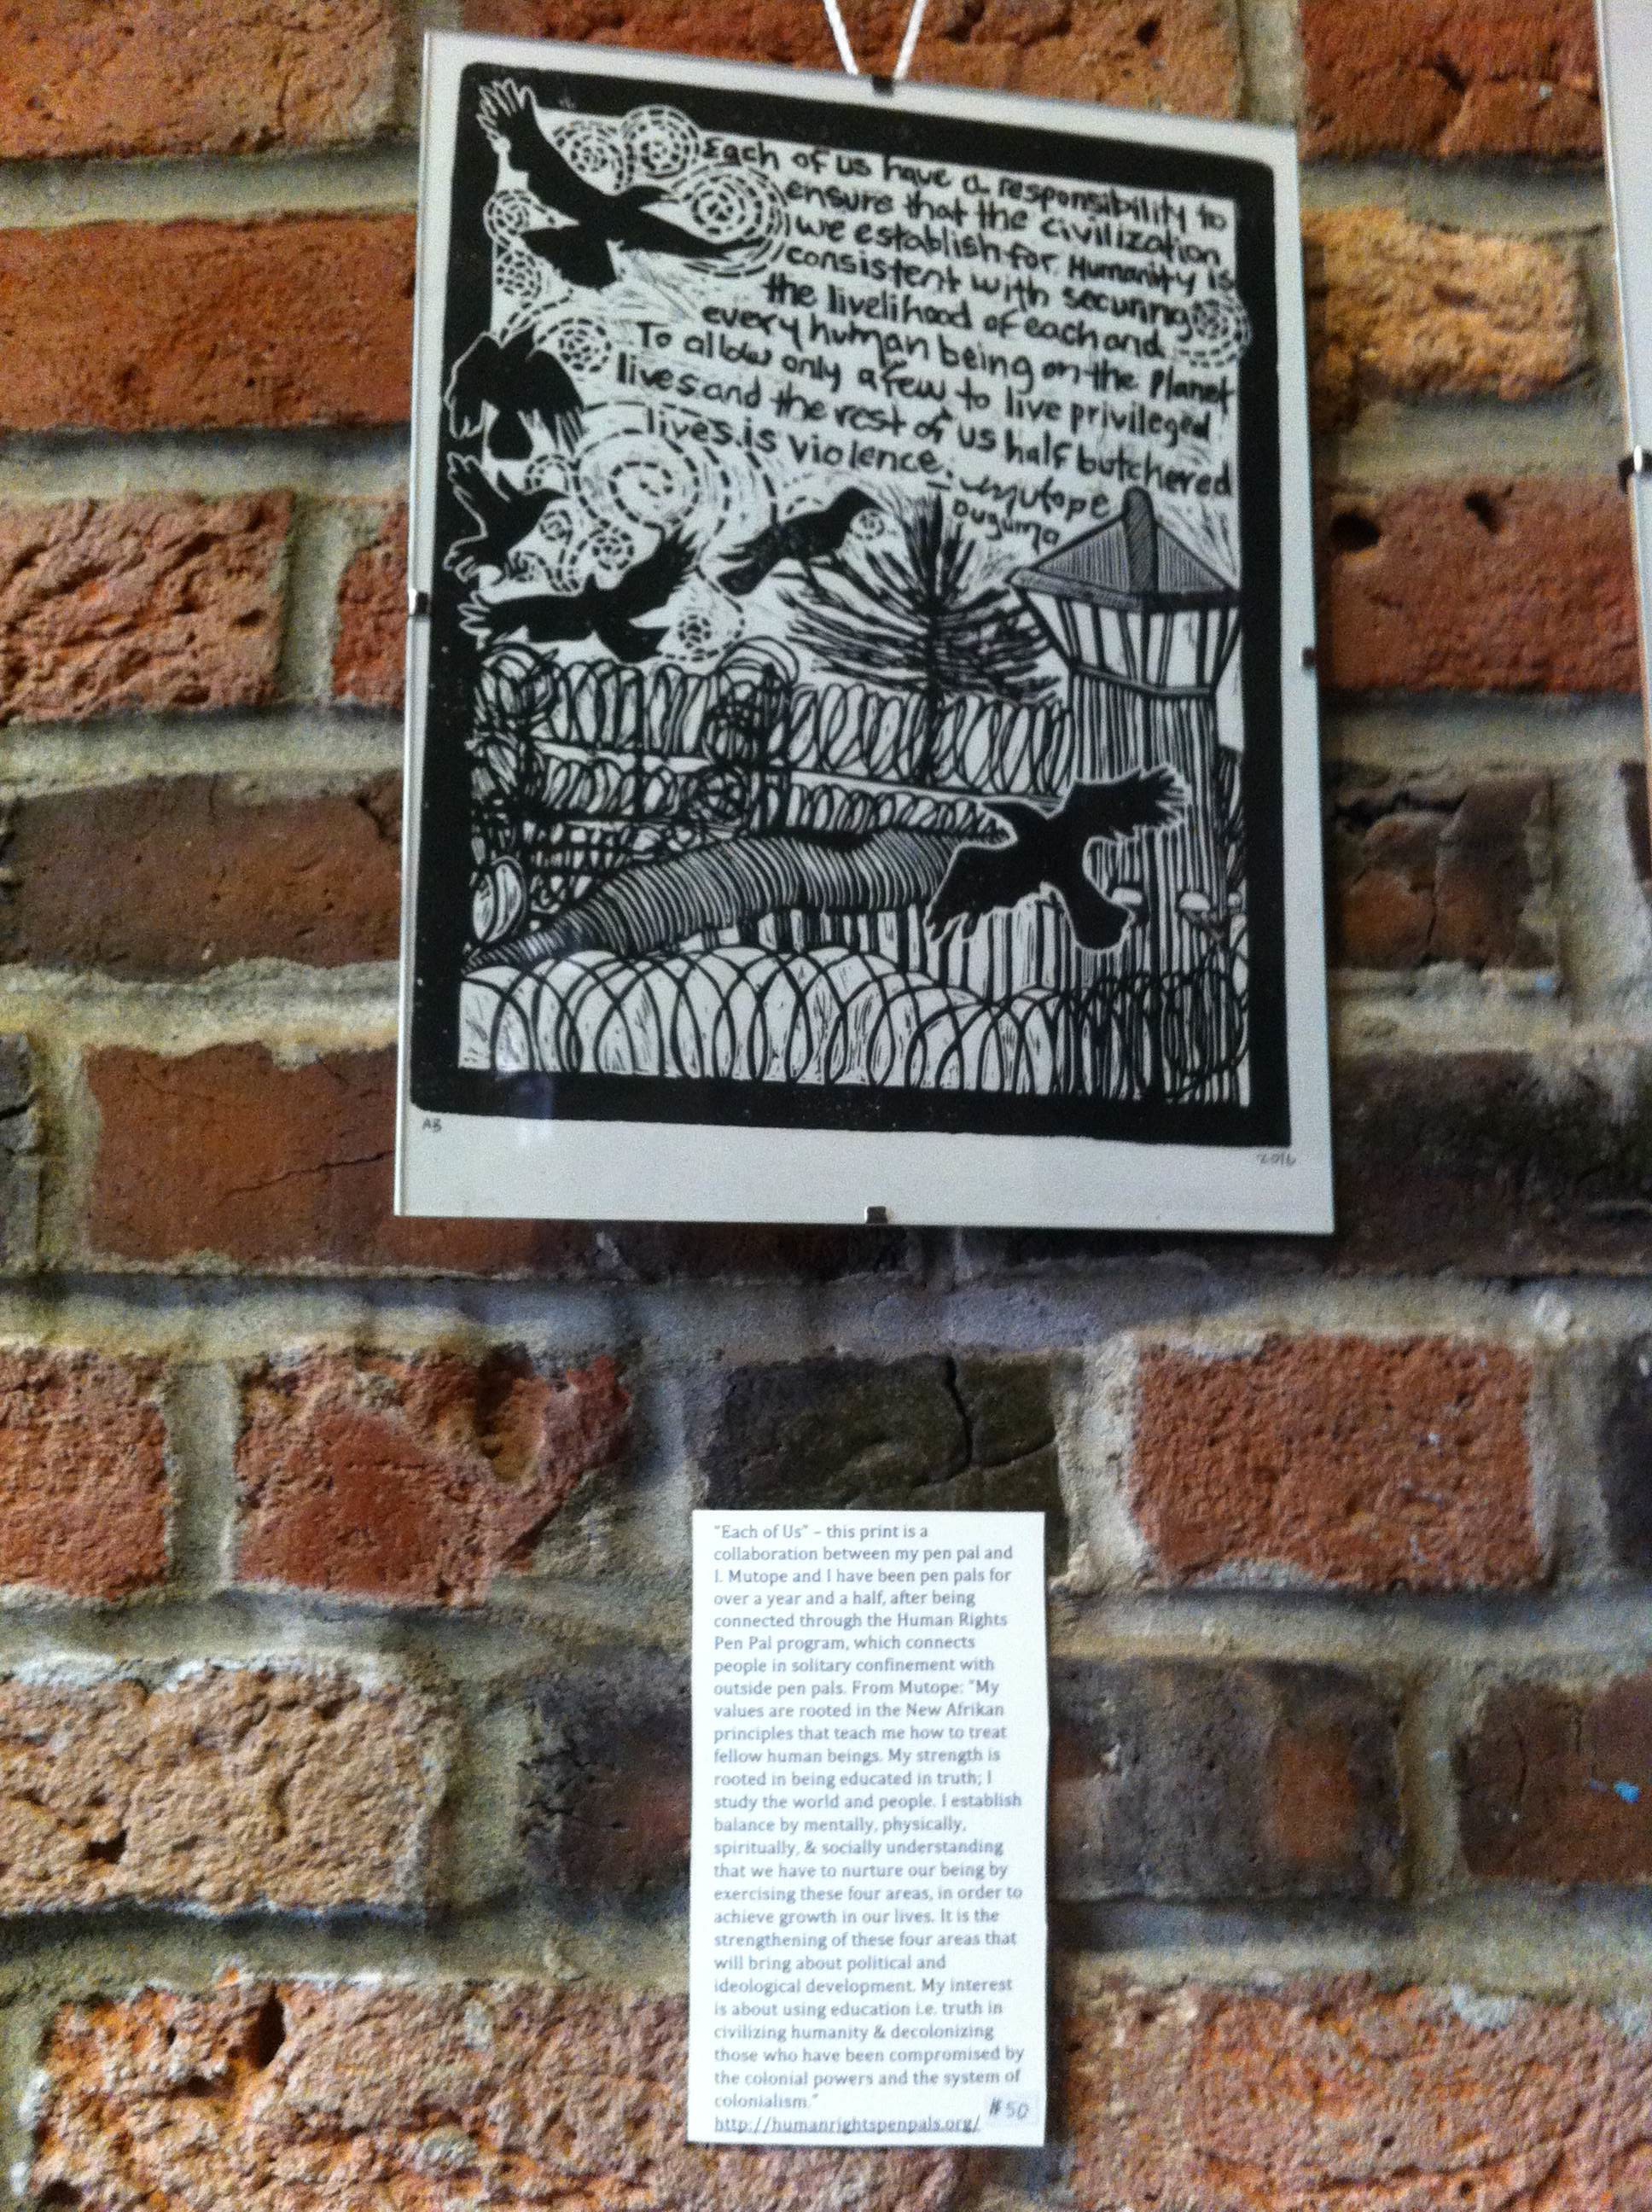 Each of us have a responsibility to
ensure that the civilization
we establish for Humanity is
consistent with securing
the livelihood of each and
every human being on the Planet
To allow only a few to live privileged
lives and the rest of us half butchered
lives is violence.
- Mutope
Duguma
AB
2016
"Each of Us" – this print is a
collaboration between my pen pal and
I. Mutope and I have been pen pals for
over a year and a half, after being
connected through the Human Rights
Pen Pal program, which connects
people in solitary confinement with
outside pen pals. From Mutope: "My
values are rooted in the New Afrikan
principles that teach me how to treat
fellow human beings. My strength is
rooted in being educated in truth; I
study the world and people. I establish
balance by mentally, physically,
spiritually, & socially understanding
that we have to nurture our being by
exercising these four areas, in order to
achieve growth in our lives. It is the
strengthening of these four areas that
will bring about political and
ideological development. My interest
is about using education i.e. truth in
civilizing humanity & decolonizing
those who have been compromised by
the colonial powers and the system of
colonialism."
#50
http://humanrightspenpals.org/